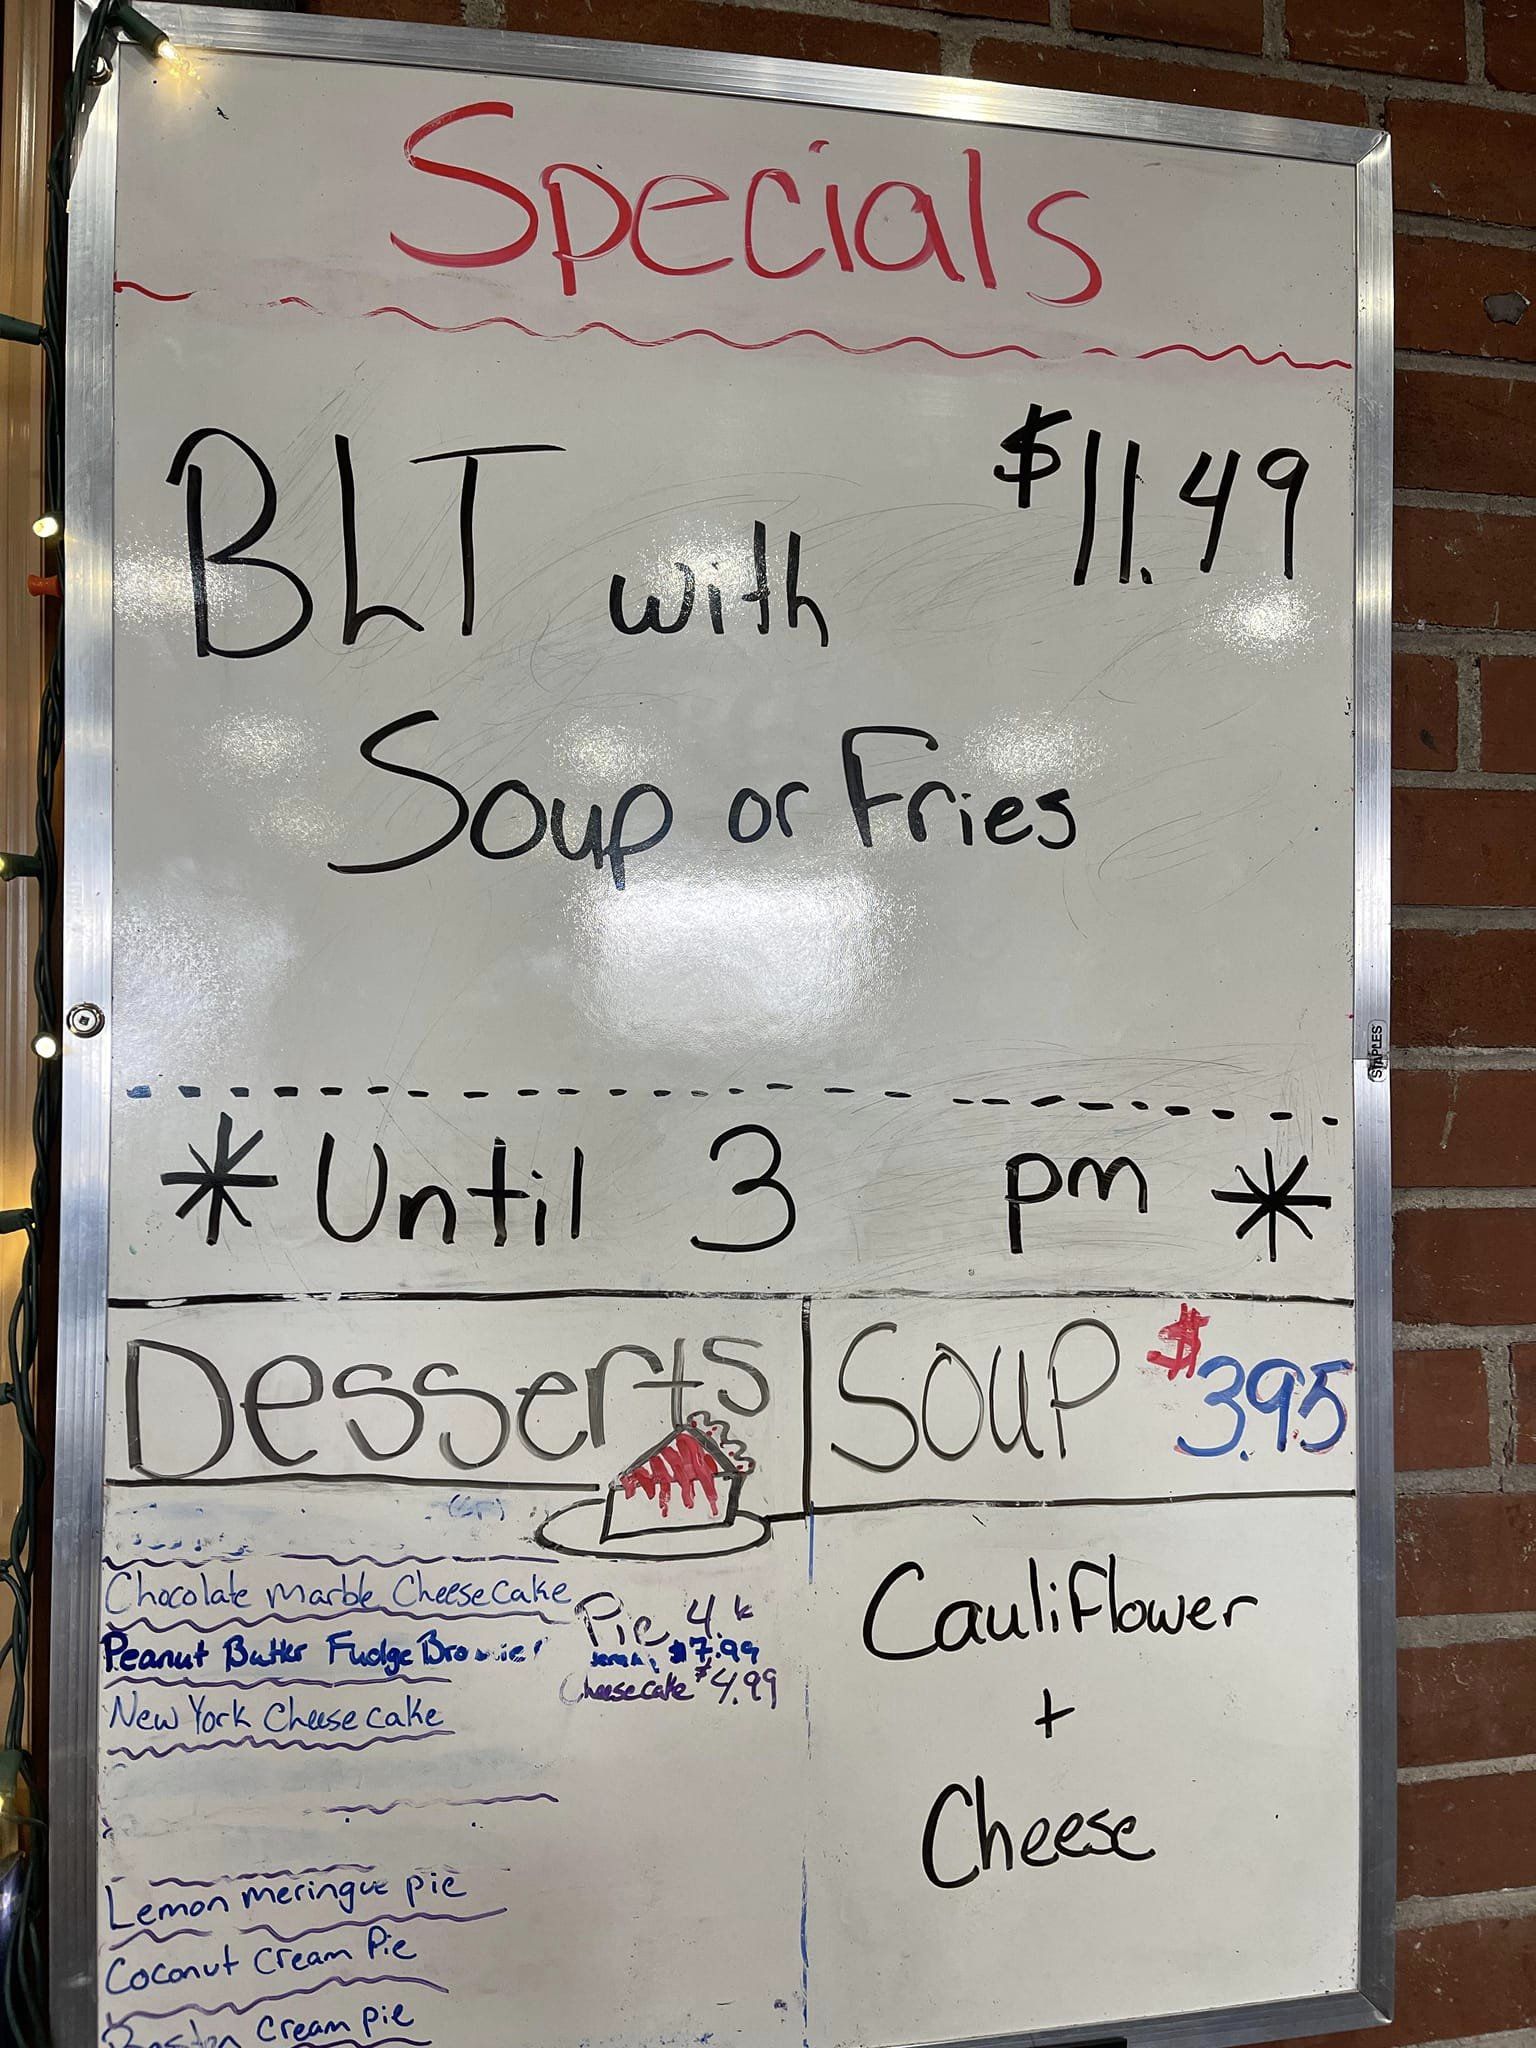 Specials
BLT with $11.49
Soup or Fries
STAPLES
* Until 3 pm *
Desserts
SOUP $3.95
(GF)
Chocolate Marble Cheesecake
Peanut Butter Fudge Brownie
New York Cheesecake
Pie 4.
$7.99
Cheesecake $4.99
Lemon meringue pie
Coconut Cream Pie
Boston Cream pie
Cauliflower
+
Cheese